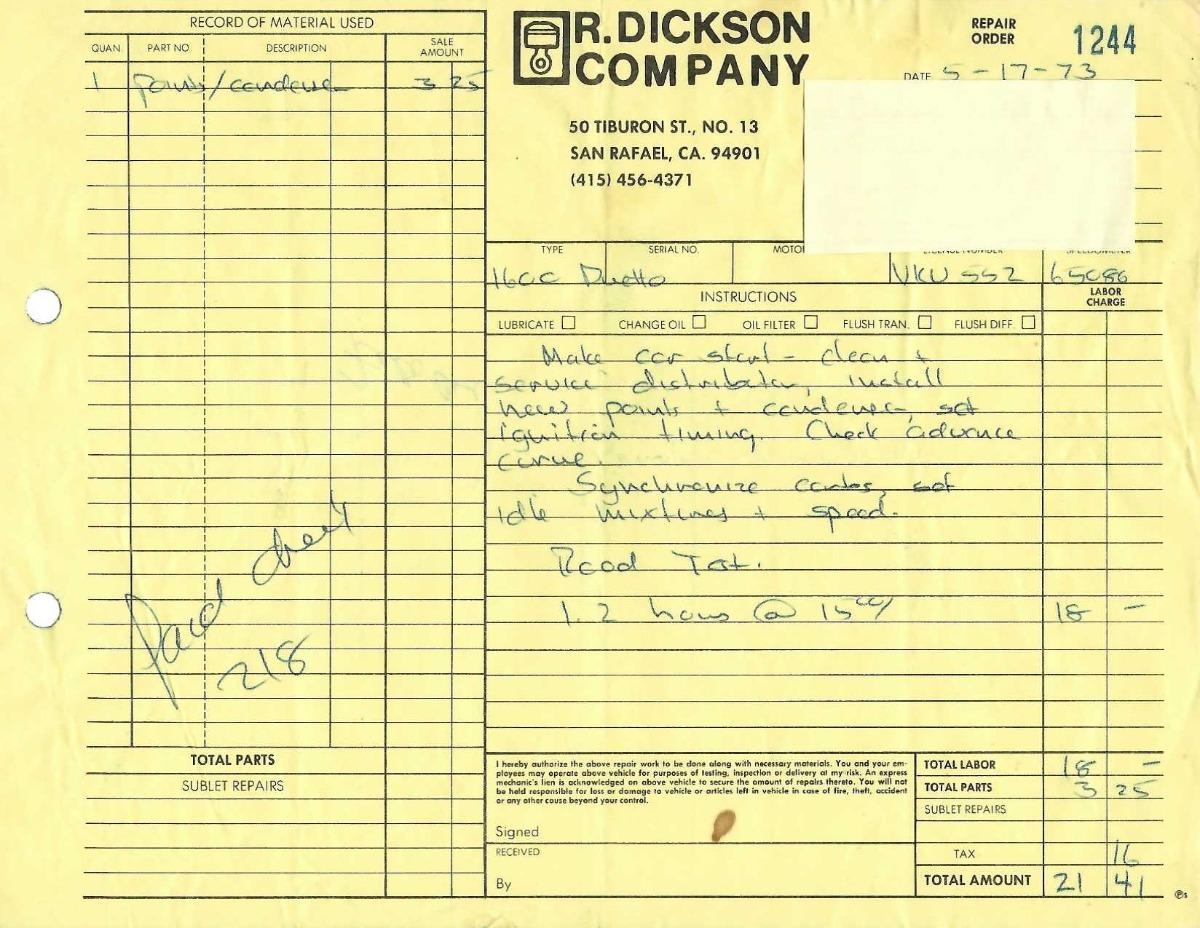 RECORD OF MATERIAL USED
QUAN. PART NO. DESCRIPTION SALE AMOUNT
1 points/condenser 3 25
Paid check
218
TOTAL PARTS
SUBLET REPAIRS
R. DICKSON
COMPANY
50 TIBURON ST., NO. 13
SAN RAFAEL, CA. 94901
(415) 456-4371
REPAIR
ORDER
1244
DATE 5-17-73
TYPE SERIAL NO. MOTO
1600 Duetto VKU 552 65086
INSTRUCTIONS LABOR CHARGE
LUBRICATE CHANGE OIL OIL FILTER FLUSH TRAN. FLUSH DIFF
Make car start - clean +
service distributor, install
new points + condenser, set
ignition timing. Check advance
curve.
Synchronize carbs, set
idle mixtures + speed.
Road Test.
1.2 hours @ 15 00/ 18 -
I hereby authorize the above repair work to be done along with necessary materials. You and your em-
ployees may operate above vehicle for purposes of testing, inspection or delivery at my risk. An express
mechanic's lien is acknowledged on above vehicle to secure the amount of repairs thereto. You will not
be held responsible for loss or damage to vehicle or articles left in vehicle in case of fire, theft, accident
or any other cause beyond your control.
Signed
RECEIVED
By
TOTAL LABOR 18 -
TOTAL PARTS 3 25
SUBLET REPAIRS
TAX 16
TOTAL AMOUNT 21 41